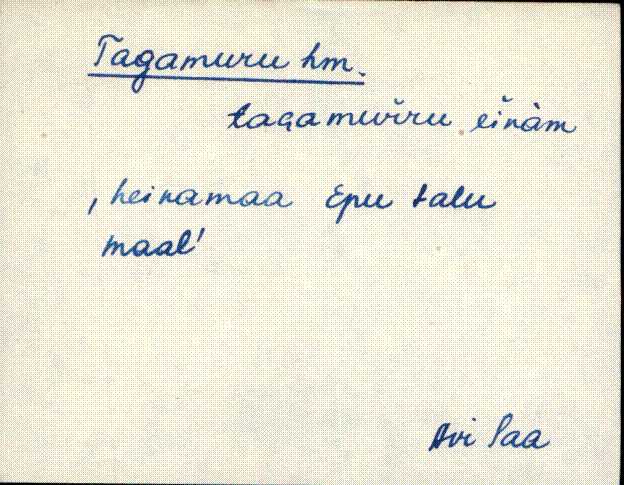 Tagamuru hm.
tagamuŭru ĕinàm
, heinamaa Epu talu
maal'
Avi Saa